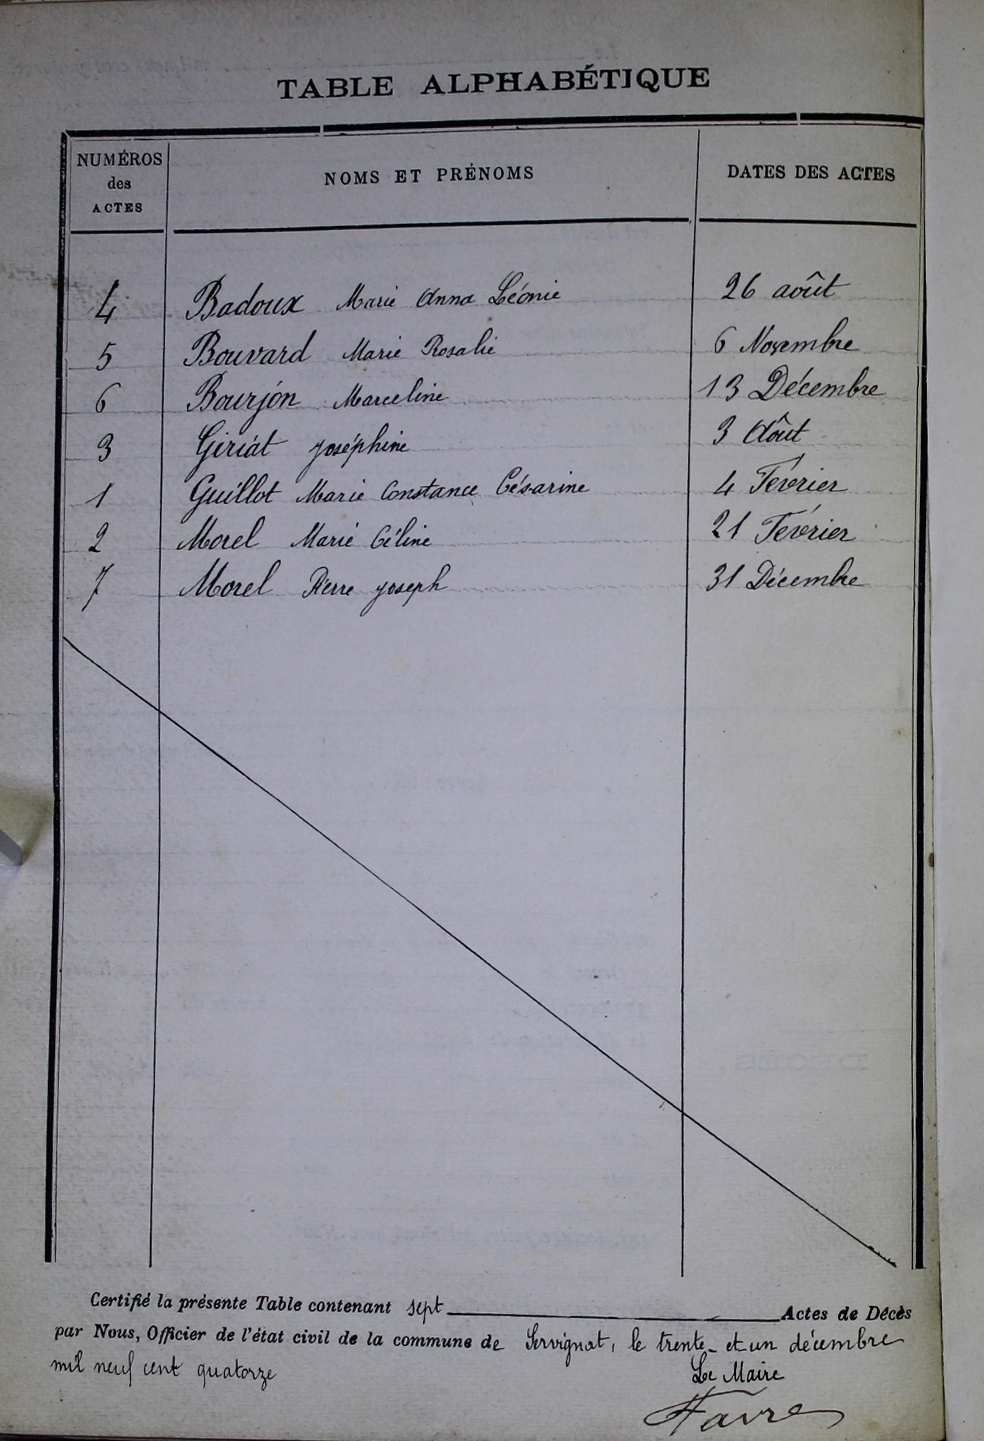 TABLE ALPHABÉTIQUE
NUMÉROS des ACTES NOMS ET PRÉNOMS DATES DES ACTES
4 Badoux Marie Anna Léonie 26 août
5 Bouvard Marie Rosalie 6 Novembre
6 Bourjon Marceline 13 Décembre
3 Giriat Joséphine 3 Août
1 Guillot Marie Constance Césarine 4 Février
2 Morel Marie Céline 21 Février
7 Morel Pierre Joseph 31 Décembre
Certifié la présente Table contenant sept Actes de Décès
par Nous, Officier de l'état civil de la commune de Servignat, le trente-et un décembre
mil neuf cent quatorze
Le Maire
Favre